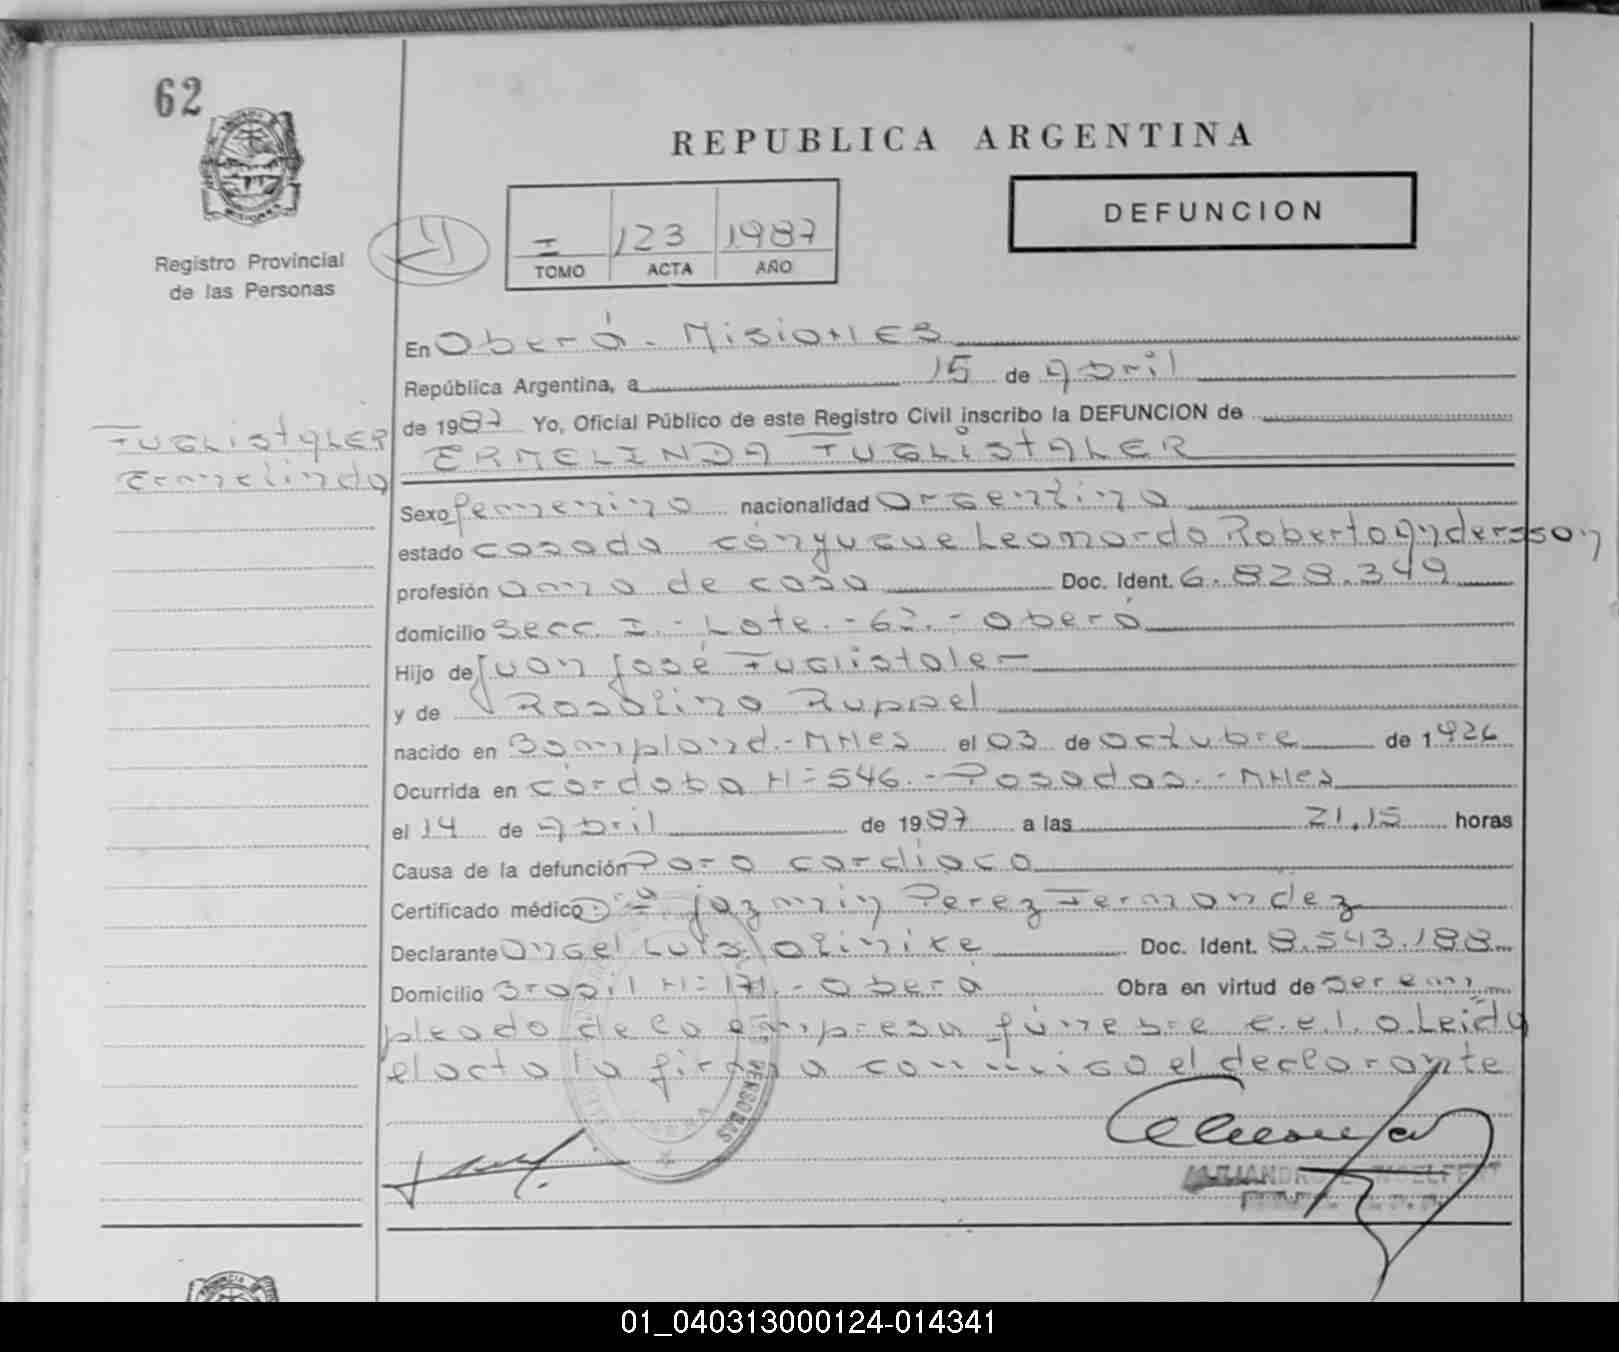 62
REPUBLICA ARGENTINA
DEFUNCION
Registro Provincial
de las Personas
I 123 1987
TOMO ACTA AÑO
En Oberá - Misiones
República Argentina, a 15 de Abril
de 1987 Yo, Oficial Público de este Registro Civil inscribo la DEFUNCION de
FUGLISTALER
Ermelinda
ERMELINDA FUGLISTALER
Sexo femenino nacionalidad argentina
estado casada cónyugue Leonardo Roberto Andersson
profesión ama de casa Doc. Ident. 6.828.349
domicilio Secc. I.- Lote.-62.- Oberá
Hijo de Juan José Fuglistaler
y de Rosalina Ruppel
nacido en Bompland.-MNes el 03 de octubre de 1926
Ocurrida en córdoba N= 546.-Posadas.-MNes
el 14 de Abril de 1987 a las 21,15 horas
Causa de la defunción Paro cardiaco
Certificado médico: Dra jazmin Perez Fernandez
Declarante Angel Luis Doc. Ident. 8.543.188
Domicilio Brasil N= 171.- Oberá Obra en virtud de ser em
pleado de la empresa fúnebre c.e.l.o. Leida
el acta la firma conmigo el declarante
PERSONAS
01_040313000124-014341